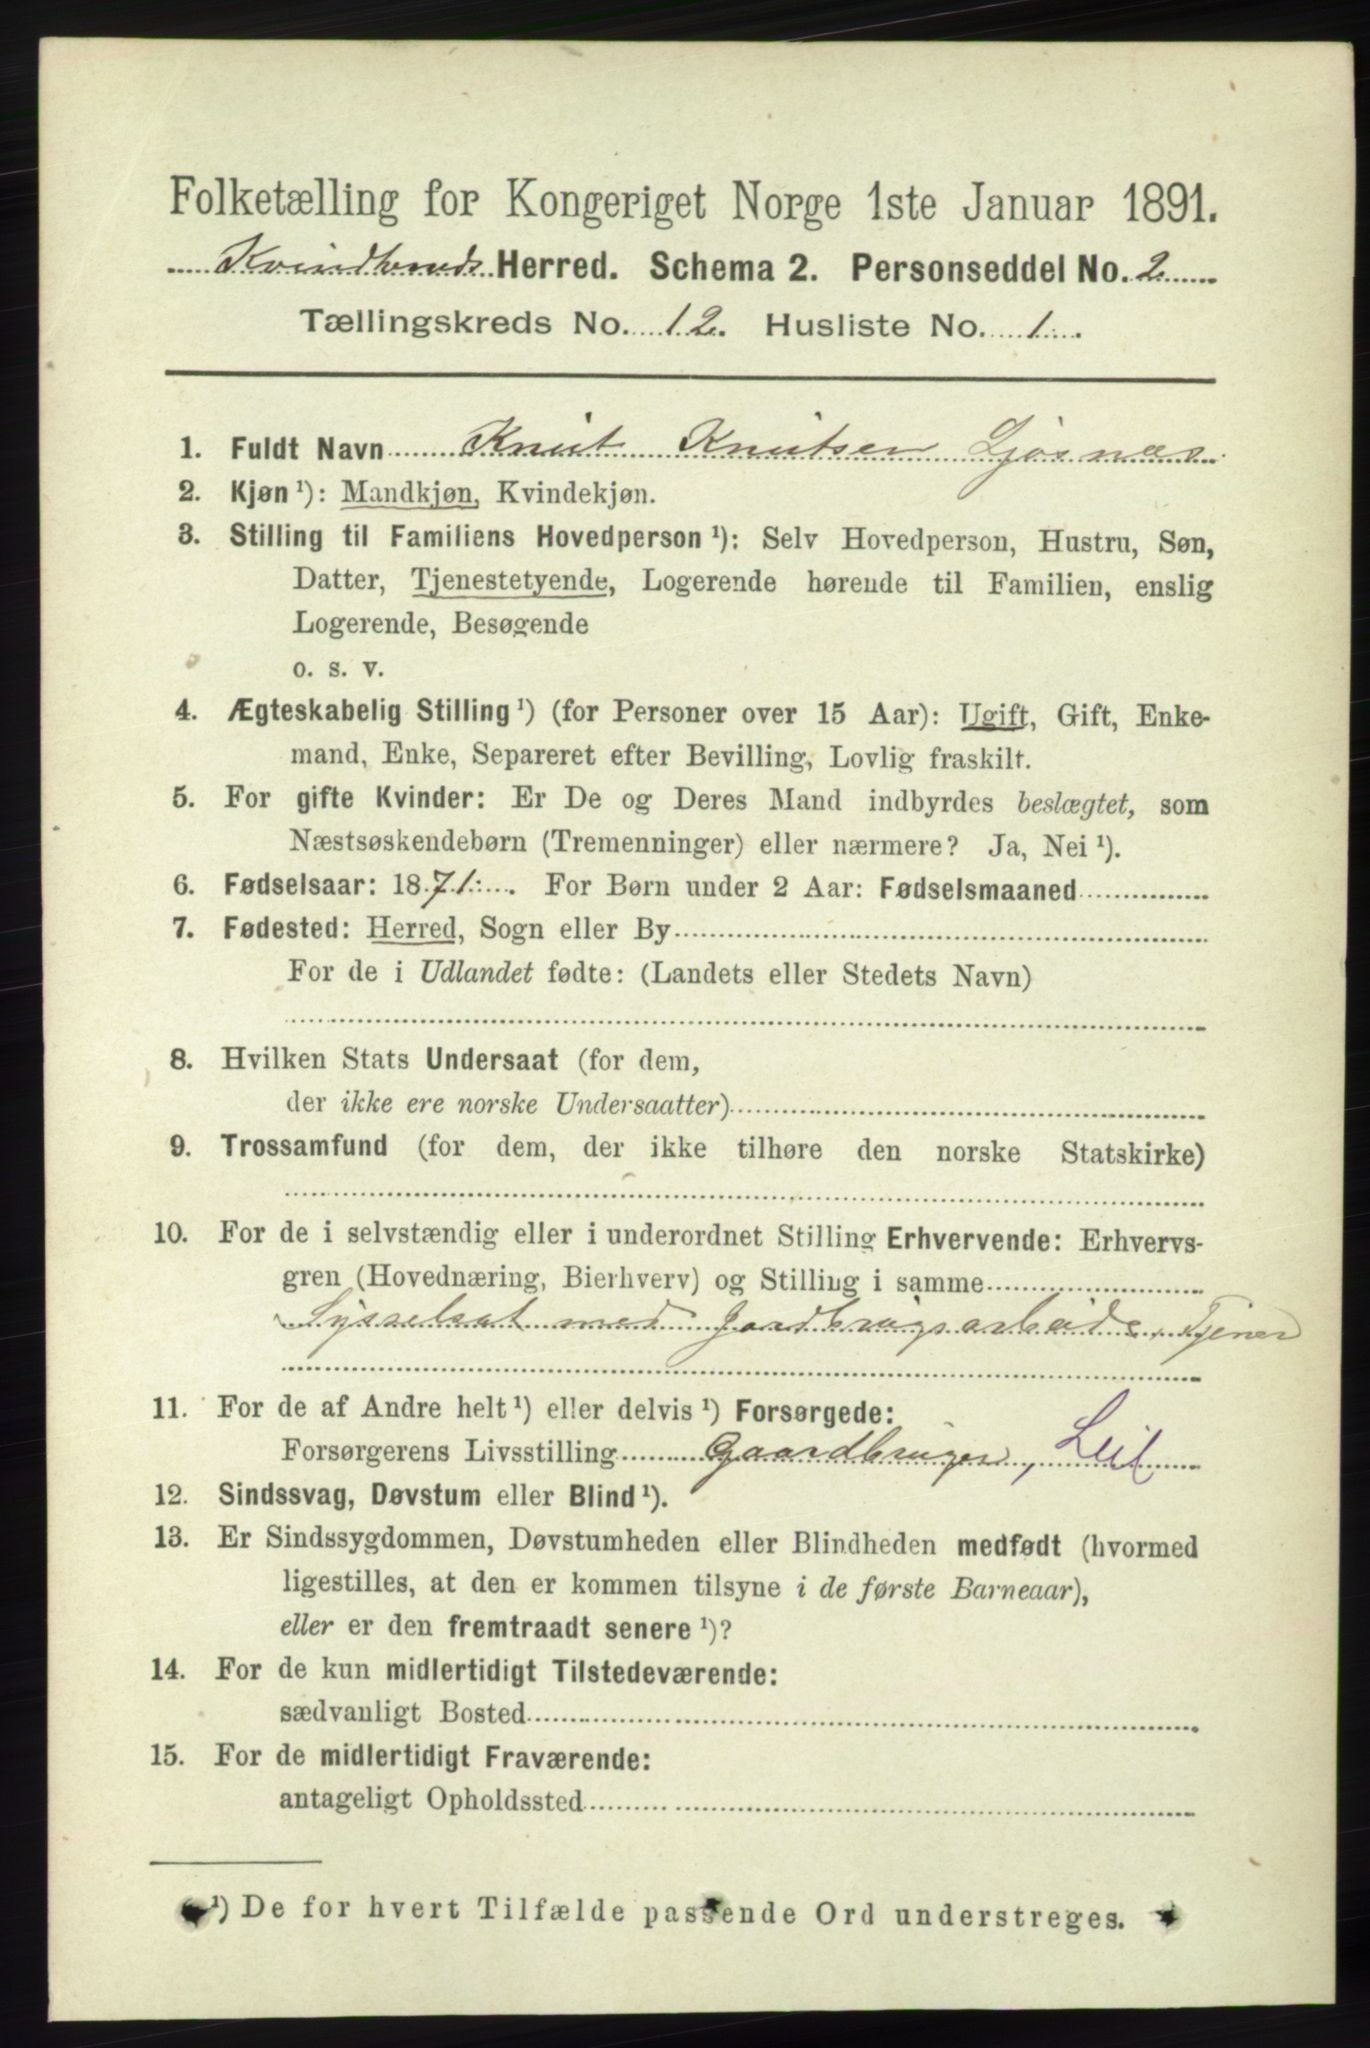 Folketælling for Kongeriget Norge 1ste Januar 1891.
Kvindherred Herred. Schema 2. Personseddel No. 2
Tællingskreds No. 12. Husliste No. 1
1. Fuldt Navn Knut Knutsen Ljosnæs
2. Kjøn ¹): Mandkjøn, Kvindekjøn.
3. Stilling til Familiens Hovedperson ¹): Selv Hovedperson, Hustru, Søn,
Datter, Tjenestetyende, Logerende hørende til Familien, enslig
Logerende, Besøgende
o. s. v.
4. Ægteskabelig Stilling ¹) (for Personer over 15 Aar): Ugift, Gift, Enke-
mand, Enke, Separeret efter Bevilling, Lovlig fraskilt.
5. For gifte Kvinder: Er De og Deres Mand indbyrdes beslægtet, som
Næstsøskendebørn (Tremenninger) eller nærmere? Ja, Nei ¹).
6. Fødselsaar: 1871. For Børn under 2 Aar: Fødselsmaaned
7. Fødested: Herred, Sogn eller By
For de i Udlandet fødte: (Landets eller Stedets Navn)
8. Hvilken Stats Undersaat (for dem,
der ikke ere norske Undersaatter)
9. Trossamfund (for dem, der ikke tilhøre den norske Statskirke)
10. For de i selvstændig eller i underordnet Stilling Erhvervende: Erhvervs-
gren (Hovednæring, Bierhverv) og Stilling i samme
Sysselsat med Jordbrugsarbeide, Tjener
11. For de af Andre helt ¹) eller delvis ¹) Forsørgede:
Forsørgerens Livsstilling Gaardbruger, Leil
12. Sindssvag, Døvstum eller Blind ¹).
13. Er Sindssygdommen, Døvstumheden eller Blindheden medfødt (hvormed
ligestilles, at den er kommen tilsyne i de første Barneaar),
eller er den fremtraadt senere ¹)?
14. For de kun midlertidigt Tilstedeværende:
sædvanligt Bosted
15. For de midlertidigt Fraværende:
antageligt Opholdssted
¹) De for hvert Tilfælde passende Ord understreges.